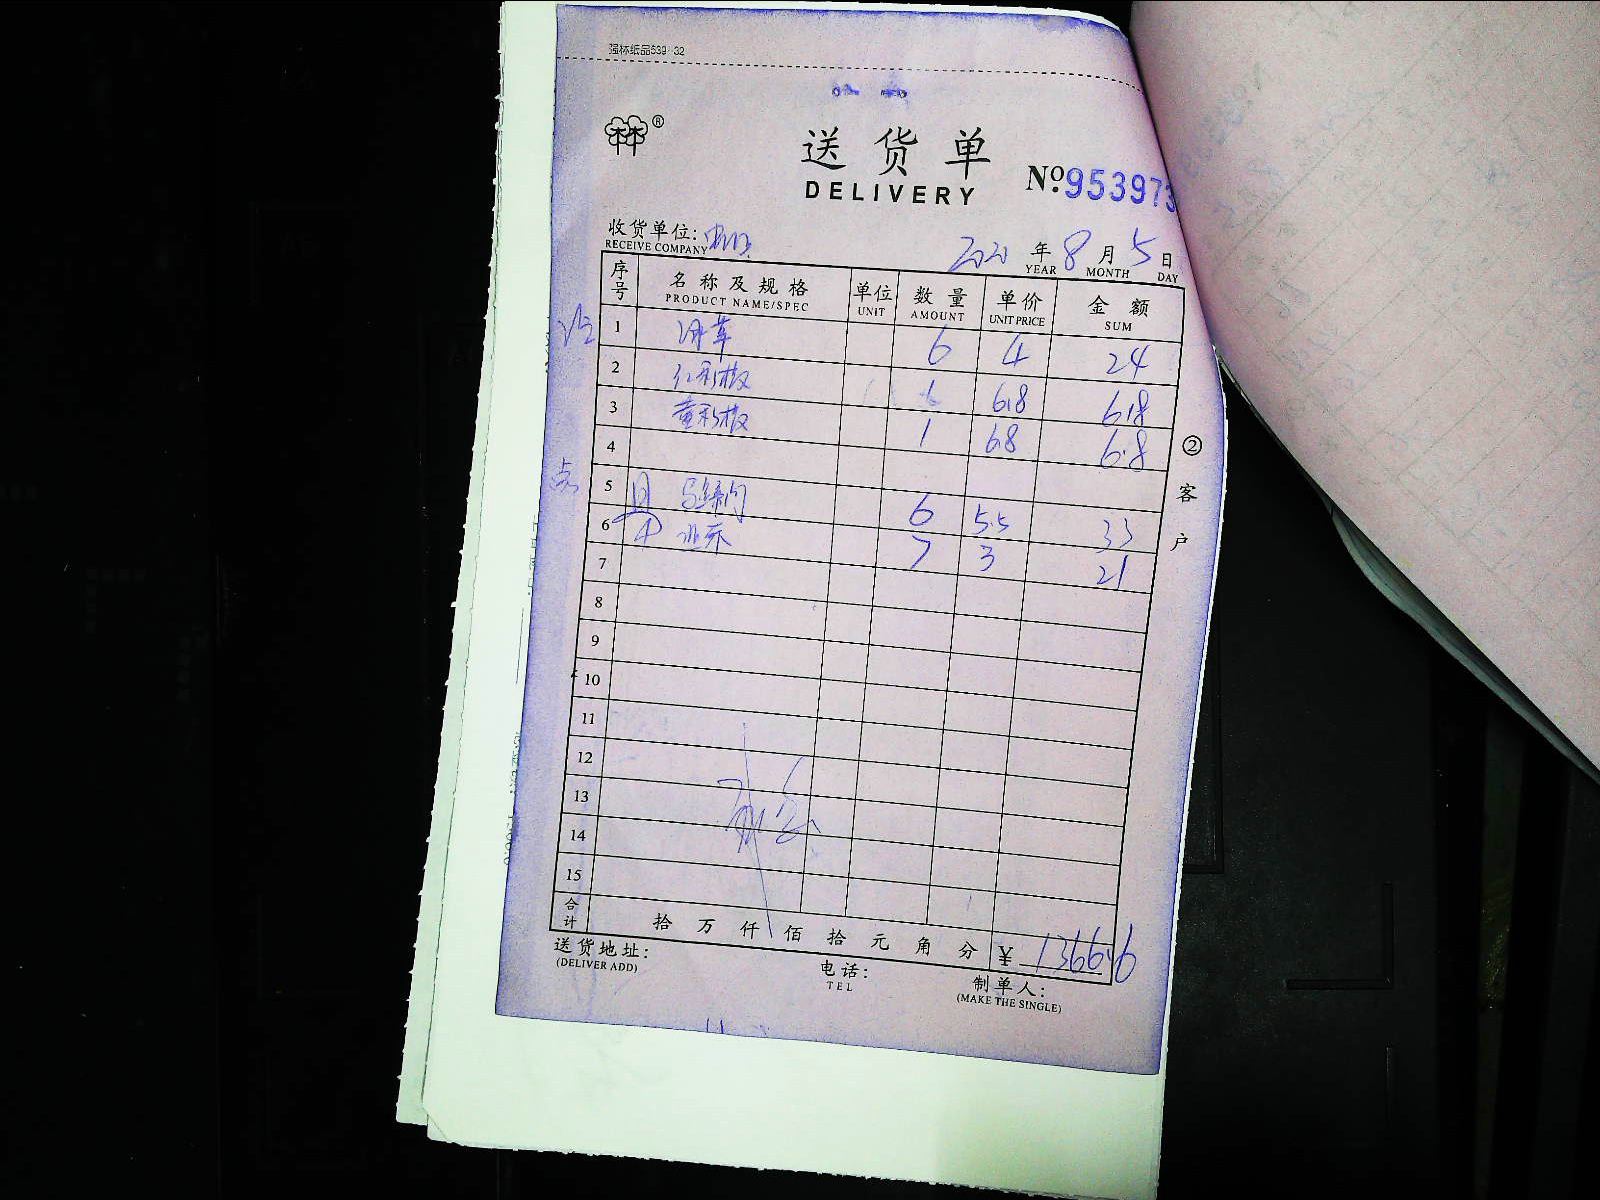 强林纸品539-32
送货单
DELIVERY
№953973
收货单位:
RECEIVE COMPANY
2020 年 8 月 5 日
YEAR MONTH DAY
序号 名称及规格 单位 数量 单价 金额
PRODUCT NAME/SPEC UNIT AMOUNT UNIT PRICE SUM
1 洋芋 6 4 24
2 红彩椒 1 6.8 6.8
3 黄彩椒 1 6.8 6.8
4
5 6 5.5 33
6 7 3 21
7
8
9
10
11
12
13
14
15
②客户
合计 拾 万 仟 佰 拾 元 角 分 ¥ 1366.6
送货地址:
(DELIVER ADD)
电话:
TEL
制单人:
(MAKE THE SINGLE)